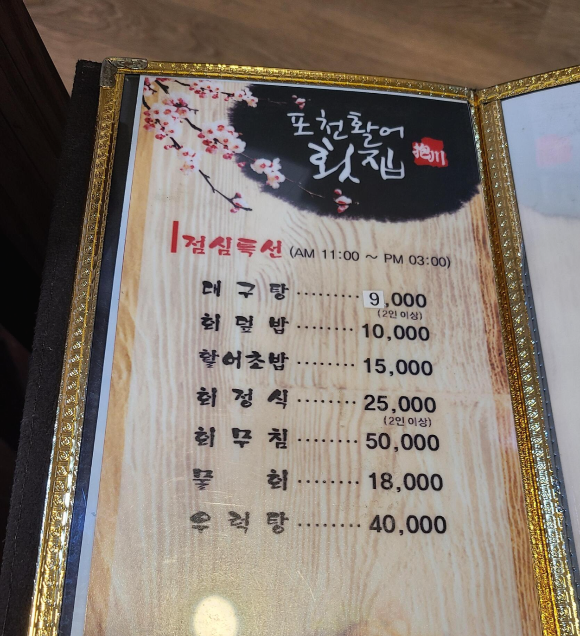 포천활어
횟집
抱川
점심특선 (AM 11:00 ~ PM 03:00)
대구탕 ········ 9,000
(2인 이상)
회덮밥 ········ 10,000
활어초밥 ········ 15,000
회정식 ········ 25,000
(2인 이상)
회무침 ········ 50,000
물회 ········ 18,000
우럭탕 ········ 40,000